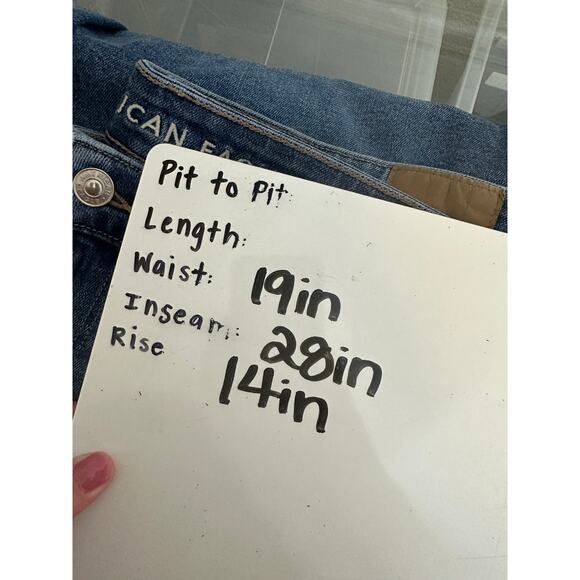 ICAN EAG
Pit to Pit:
Length:
Waist: 19in
Inseam: 28in
Rise 14in